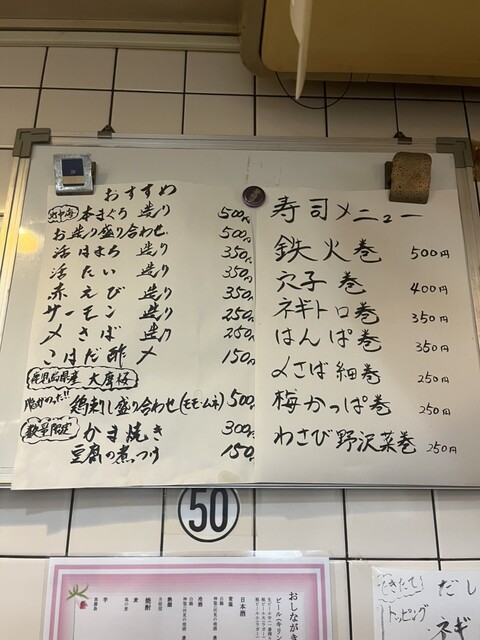 おすすめ
地中海 本まぐろ 造り 500円
お造り盛り合わせ 500円
活はまち 造り 350円
活たい 造り 350円
赤えび 造り 350円
サーモン 造り 250円
〆さば 造り 250円
こはだ酢〆 150円
鹿児島県産 大摩桜
鶏刺し盛り合わせ(モモ・ムネ) 500円
数量限定 かま焼き 300円
豆腐の煮つけ 150円
寿司メニュー
鉄火巻 500円
穴子巻 400円
ネギトロ巻 350円
はんぱ巻 350円
〆さば細巻 250円
梅かっぱ巻 250円
わさび野沢菜巻 250円
50
おしながき
日本酒
焼酎
できたて!
だし
トッピング
ネギ